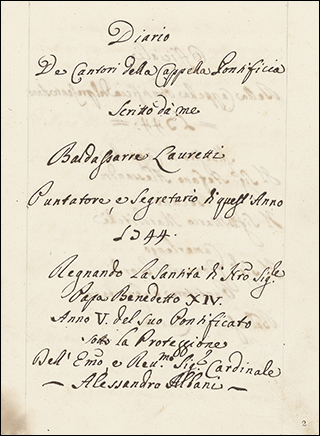 Diario
De Cantori della Cappella Pontificia
Scritto dà me
Baldassarre Lauretti
Puntatore, e Segretario di quest'Anno
1744.
Regnando La Santità di Nro Sig.re
Papa Benedetto XIV.
Anno V. del Suo Pontificato
sotto la Protezione
Dell' Emo e Reu.mo Sig.r Cardinale
Alessandro Albani
2